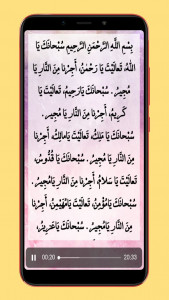 بِسْمِ اللَّهِ الرَّحْمَنِ الرَّحِيمِ سُبْحَانَكَ يَا
اللَّهُ، تَعَالَيْتَ يَا رَحْمَنُ، أَجِرْنَا مِنَ النَّارِ يَا
مُجِيرُ. سُبْحَانَكَ يَارَحِيمُ، تَعَالَيْتَ يَا
كَرِيمُ، أَجِرْنَا مِنَ النَّارِ يَا مُجِيرُ.
سُبْحَانَكَ يَا مَلِكُ، تَعَالَيْتَ يَامَالِكُ، أَجِرْنا
مِنَ النَّارِ يَا مُجِيرُ. سُبْحَانَكَ يَا قُدُّوسُ،
تَعَالَيْتَ يَا سَلَامُ، أَجِرْنَا مِنَ النَّارِ يَامُجِيرُ.
سُبْحَانَكَ يَامُؤْمِنُ، تَعَالَيْتَ يَامُهَيْمِنُ، أَجِرْنَا
مِنَ النَّارِ يَامُجِيرُ. سُبْحَانَكَ يَاعَزِيزُ،
00:20 20:33